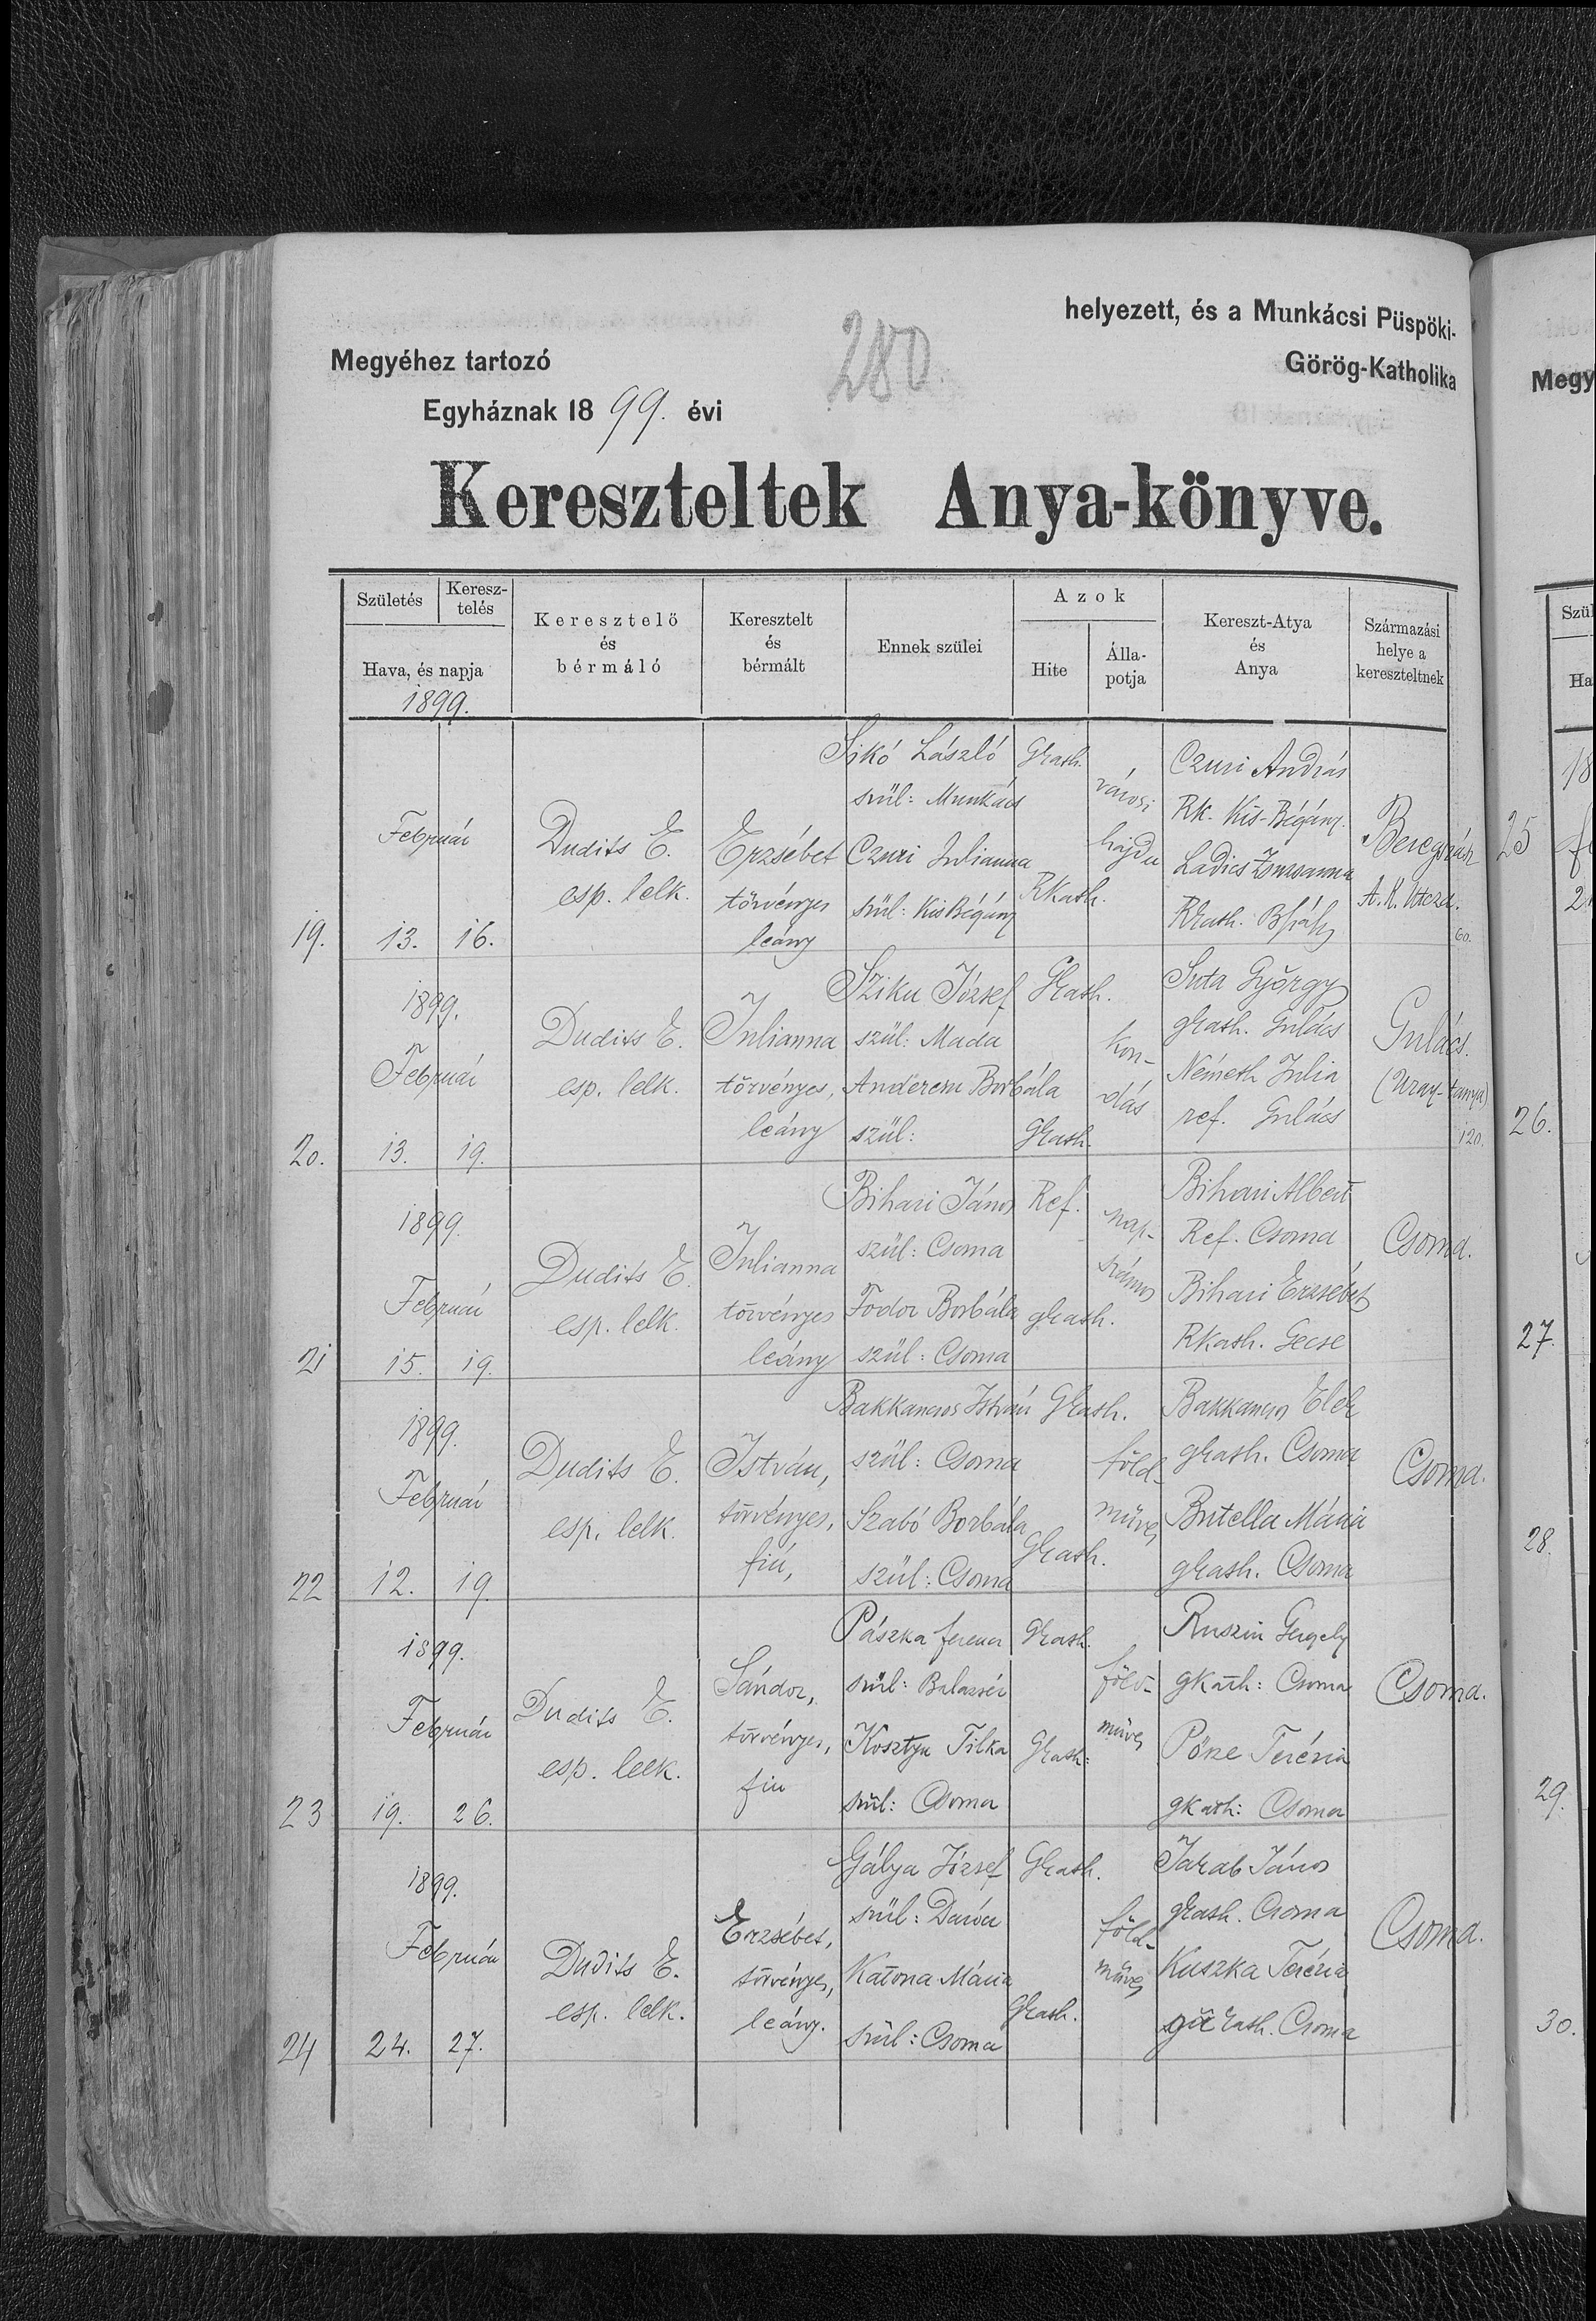 280.
helyezett, és a Munkácsi Püspöki-
Megyéhez tartozó
Görög-Katholika
Egyháznak 1899. évi
Kereszteltek Anya-könyve.
Születés
Keresz-
telés
Hava, és napja
1899.
Keresztelő
és
bérmáló
Keresztelt
és
bérmált
Ennek szülei
Azok
Hite
Álla-
potja
Kereszt-Atya
és
Anya
Származási
helye a
kereszteltnek
19.
Február
13. 16.
Dudits E.
esp. lelk.
Erzsébet
törvényes
leány
Sikó László
szül: Munkács
Czuri Julianna
szül: Kis Bégány
Gkath.
Rkath.
városi
hajdu
Czuri András
Rk. Kis-Bégány.
Ladics Zsuzsanna
Rkath. Bfalu
Beregszász
A. K. Utcza.
60.
20.
1899.
Február
13. 19.
Dudits E.
esp. lelk.
Julianna
törvényes,
leány
Sziku József
szül: Mada
Anderem Borbála
szül:
Gkath.
Gkath.
kon-
dás
Suta György
gkath. Gulács
Németh Julia
ref. Gulács
Gulács.
(Uray-tanya)
120.
21
1899.
Február
15. 19.
Dudits E.
esp. lelk.
Julianna
törvényes
leány
Bihari János
szül: Csoma
Fodor Borbála
szül: Csoma
Ref.
gkath.
nap-
számos
Bihari Albert
Ref. Csoma
Bihari Erzsébet
Rkath. Gecse
Csoma.
22
1899.
Február
12. 19.
Dudits E.
esp. lelk.
István,
törvényes,
fiú,
Bakkancsos István
szül: Csoma
Szabó Borbála
szül: Csoma
Gkath.
Gkath.
föld-
műves
Bakkancsos Elek
gkath. Csoma
Butella Mária
gkath. Csoma
Csoma.
23
1899.
Február
19. 26.
Dudits E.
esp. lelk.
Sándor,
törvényes,
fiu
Pászka ferencz
szül: Balazsér
Kosztyu Tilka
szül: Csoma
Gkath.
Gkath:
föld-
műves
Ruszin Gergely
gkath: Csoma
Pőze Terézia
gkath: Csoma
Csoma.
24
1899.
Február
24. 27.
Dudits E.
esp. lelk.
Erzsébet,
törvényes,
leány.
Gálya József
szül: Daróc
Katona Mária
szül: Csoma
Gkath.
Gkath.
föld-
műves
Jakab János
gkath. Csoma
Kuszka Terézia
gör kath. Csoma
Csoma.
Megy
Szül
Ha
18
25
2
26.
27.
28.
29.
30.